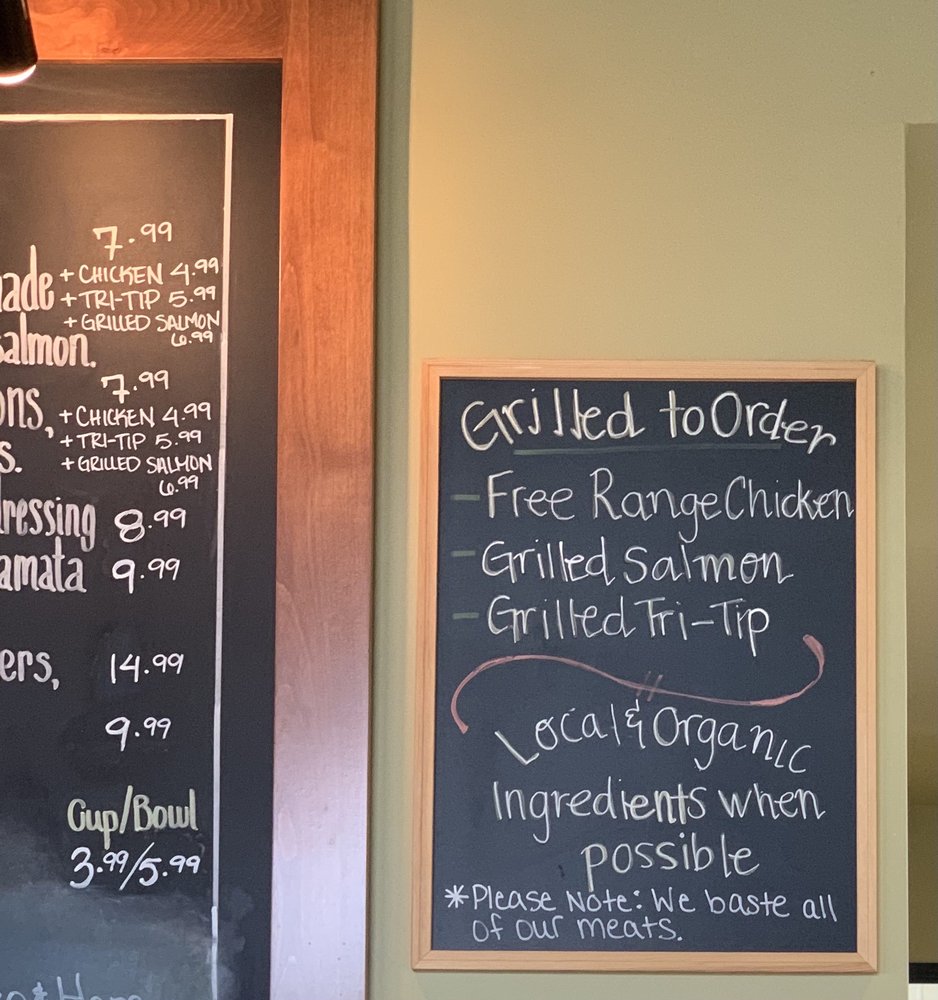 7.99
ade + CHICKEN 4.99
+ TRI-TIP 5.99
+ GRILLED SALMON
salmon. 6.99
7.99
ons, + CHICKEN 4.99
+ TRI-TIP 5.99
s. + GRILLED SALMON
6.99
ressing 8.99
amata 9.99
ers, 14.99
9.99
Cup/Bowl
3.99/5.99
Grilled to Order
- Free Range Chicken
- Grilled Salmon
- Grilled Tri-Tip
Local & Organic
Ingredients when
possible
* Please Note: We baste all
of our meats.